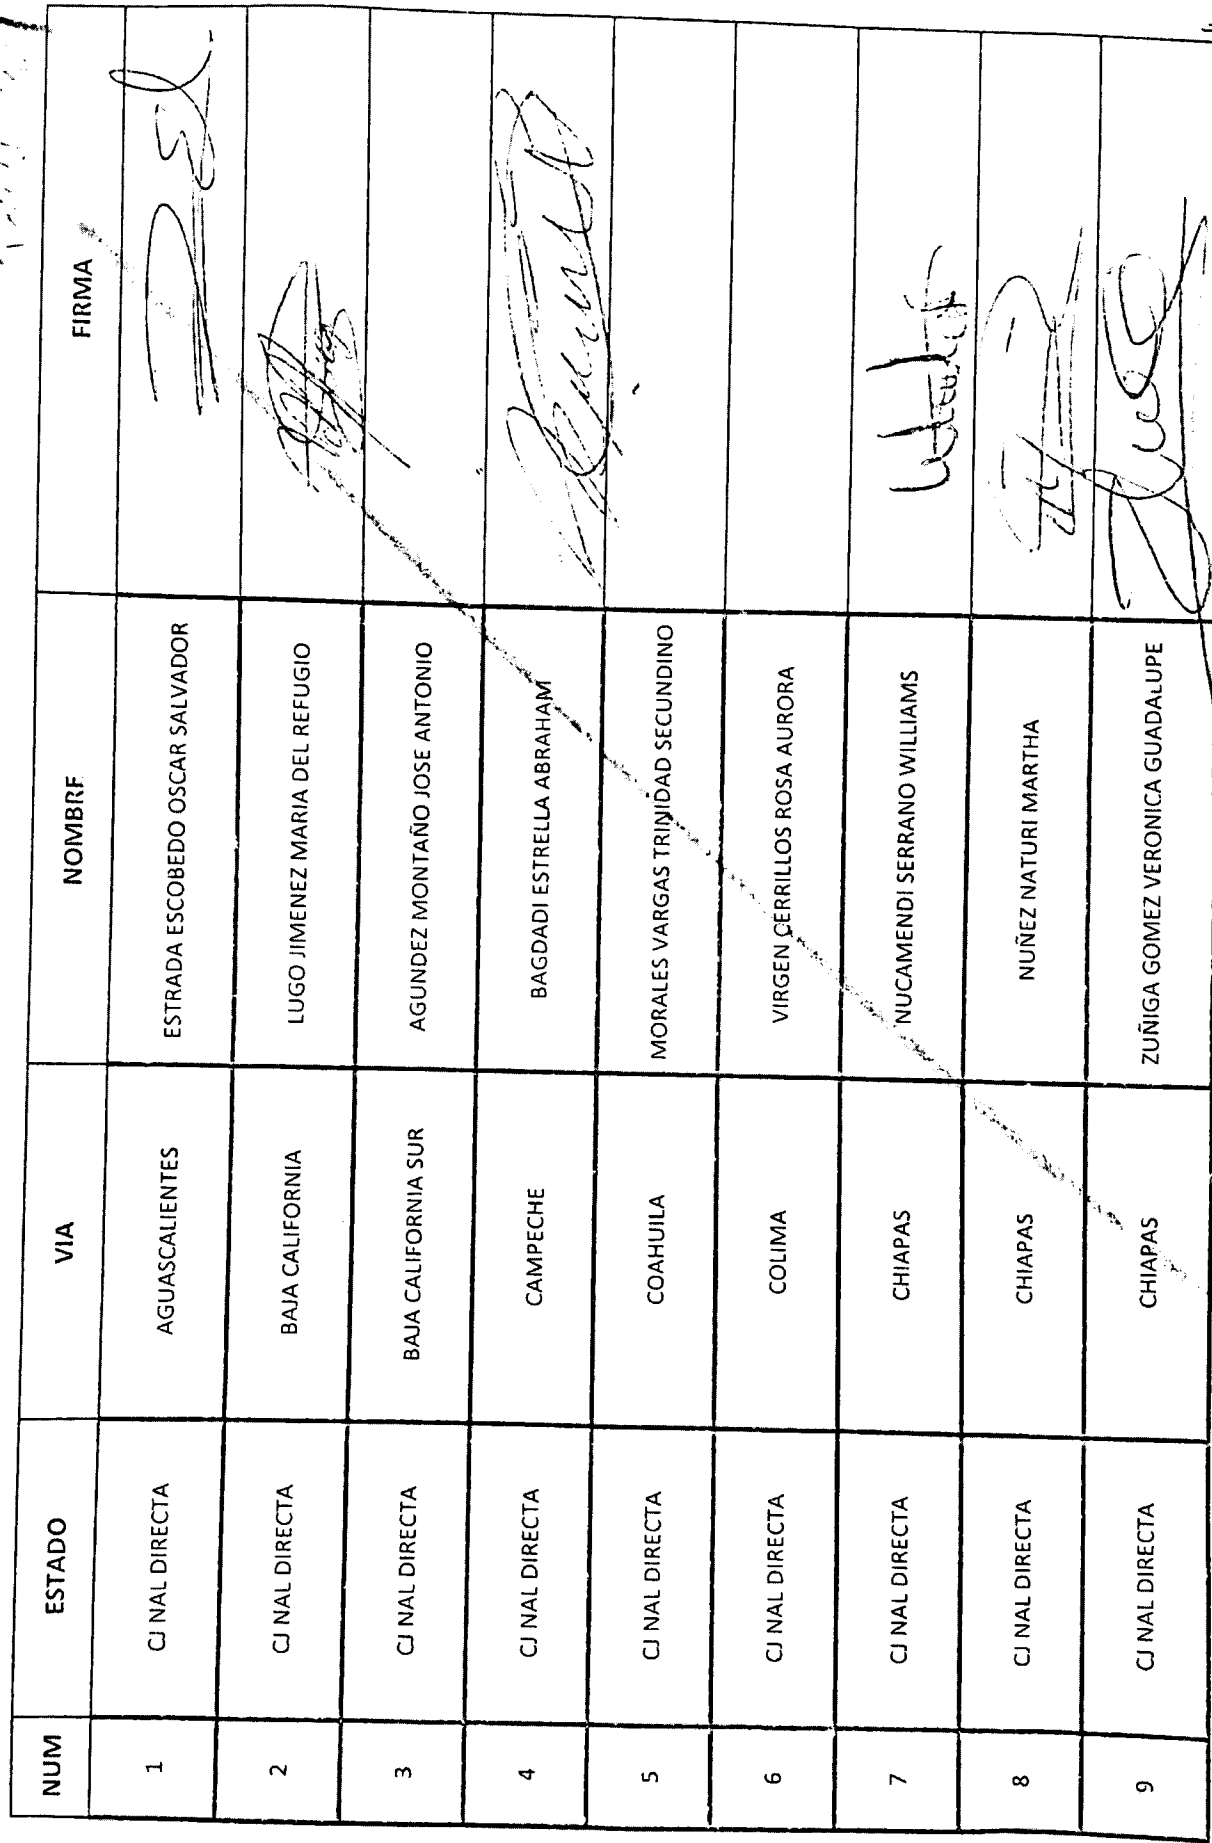 NUM ESTADO VIA NOMBRE FIRMA
1 CJ NAL DIRECTA AGUASCALIENTES ESTRADA ESCOBEDO OSCAR SALVADOR
2 CJ NAL DIRECTA BAJA CALIFORNIA LUGO JIMENEZ MARIA DEL REFUGIO
3 CJ NAL DIRECTA BAJA CALIFORNIA SUR AGUNDEZ MONTAÑO JOSE ANTONIO
4 CJ NAL DIRECTA CAMPECHE BAGDADI ESTRELLA ABRAHAM
5 CJ NAL DIRECTA COAHUILA MORALES VARGAS TRINIDAD SECUNDINO
6 CJ NAL DIRECTA COLIMA VIRGEN CERRILLOS ROSA AURORA
7 CJ NAL DIRECTA CHIAPAS NUCAMENDI SERRANO WILLIAMS
8 CJ NAL DIRECTA CHIAPAS NUÑEZ NATURI MARTHA
9 CJ NAL DIRECTA CHIAPAS ZUÑIGA GOMEZ VERONICA GUADALUPE